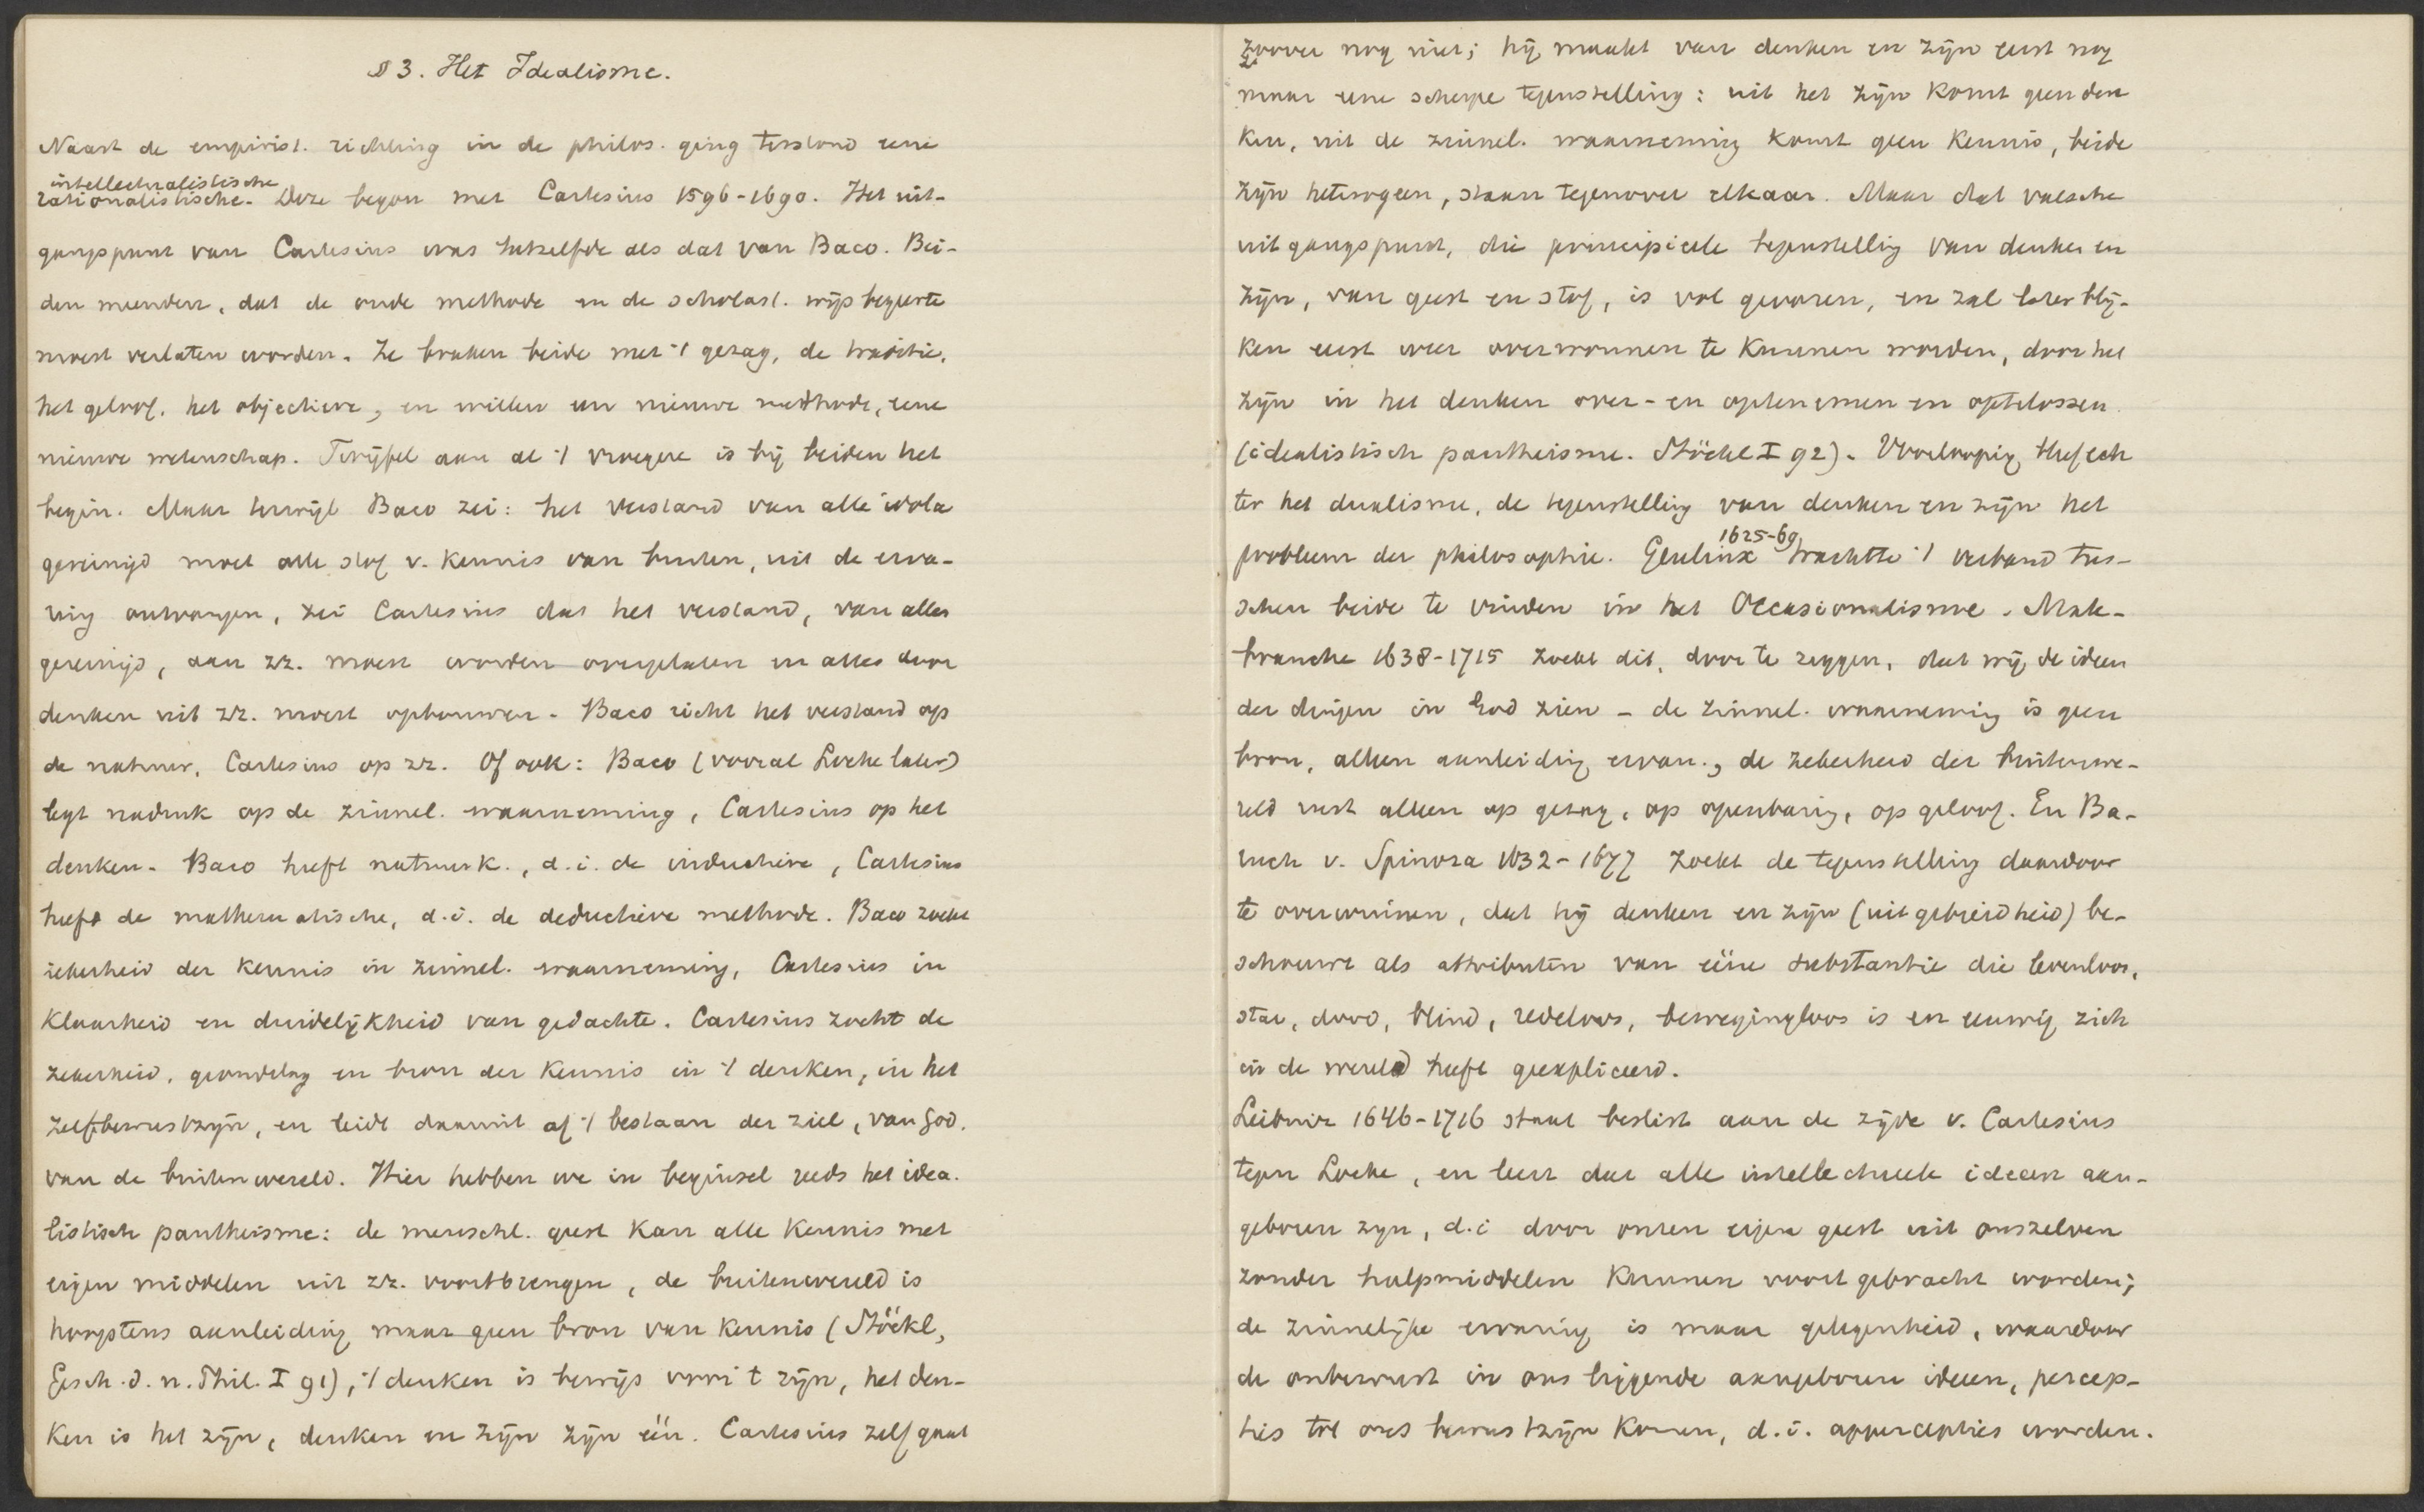 § 3. Het Idealisme.
Naast de empirist. richting in de philos. ging terstond eene
intellectualistische
rationalistische. Deze begon met Cartesius 1596-1690. Het uit-
gangspunt van Cartesius was hetzelfde als dat van Baco. Bei-
den meenden, dat de oude methode en de scholast. wijsbegeerte
moest verlaten worden. Ze braken beide met 't gezag, de traditie,
het geloof, het objectieve, en willen een nieuwe methode, eene
nieuwe wetenschap. Twijfel aan al 't vroegere is bij beiden het
begin. Maar terwijl Baco zei: het verstand van alle idola
gereinigd moet alle stof v. kennis van buiten, uit de erva-
ring ontvangen, zei Cartesius dat het verstand, van alles
gereinigd, aan zz. moest worden overgelaten en alles door
denken uit zz. moest opbouwen. Baco richt het verstand op
de natuur, Cartesius op zz. Of ook: Baco (vooral Locke later)
legt nadruk op de zinnel. waarneming, Cartesius op het
denken. Baco heeft natuurk., d.i. de inductieve, Cartesius
heeft de mathematische, d.i. de deductieve methode. Baco zoekt
zekerheid der kennis in zinnel. waarneming, Cartesius in
klaarheid en duidelijkheid van gedachte. Cartesius zocht de
zekerheid, grondslag en bron der kennis in 't denken, in het
zelfbewustzijn, en leidt daaruit af 't bestaan der ziel, van God,
van de buitenwereld. Hier hebben we in beginsel reeds het idea-
listisch pantheisme: de menschl. geest kan alle kennis met
eigen middelen uit zz. voortbrengen, de buitenwereld is
hoogstens aanleiding maar geen bron van kennis (Stöckl,
Gesch. d. n. Phil. I 91), 't denken is bewijs voor 't zijn, het den-
ken is het zijn, denken en zijn zijn één. Cartesius zelf gaat
zoover nog niet; hij maakt van denken en zijn eerst nog
maar eene scherpe tegenstelling: uit het zijn komt geen den
ken, uit de zinnel. waarneming komt geen kennis, beide
zijn heterogeen, staan tegenover elkaar. Maar dat valsche
uitgangspunt, die principieele tegenstelling van denken en
zijn, van geest en stof, is vol gevaren, en zal later blij-
ken eerst weer overwonnen te kunnen worden, door het
zijn in het denken over- en optenemen en optelossen.
(idealistisch pantheisme. Stöckl I 92). Voorloopig bleef ech
ter het dualisme, de tegenstelling van denken en zijn het
1625-69
probleem der philosophie. Geulinx trachtte 't verband tus-
schen beide te vinden in het Occasionalisme. Male-
branche 1638-1715 zoekt dit, door te zeggen, dat wij de ideen
der dingen in God zien - de zinnel. waarneming is geen
bron, alleen aanleiding ervan., de zekerheid der buitenwe-
reld rust alleen op gezag, op openbaring, op geloof. En Ba-
ruch v. Spinoza 1632-1677 zoekt de tegenstelling daardoor
te overwinnen, dat hij denken en zijn (uitgebreidheid) be-
schouwt als attributen van ééne substantie die levenloos,
star, dood, blind, redeloos, bewegingloos is en eeuwig zich
in de wereld heeft geexpliceerd.
Leibniz 1646-1716 staat beslist aan de zijde v. Cartesius
tegen Locke, en leert dat alle intellectueele ideeen aan-
geboren zijn, d.i door onzen eigen geest uit onszelven
zonder hulpmiddelen kunnen voortgebracht worden;
de zinnelijke ervaring is maar gelegenheid, waardoor
de onbewust in ons liggende aangeboren ideen, percep-
ties tot ons bewustzijn komen, d.i. appercepties worden.